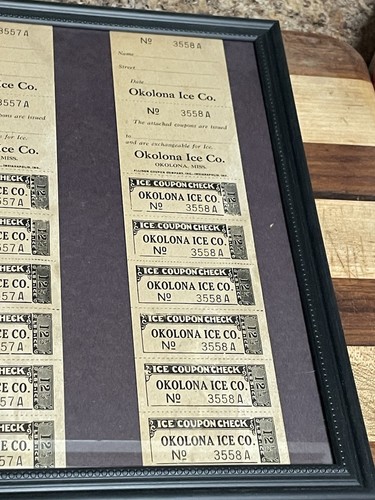 3557A
ce Co.
3557A
are issued
for Ice.
ce Co.
MISS.
HECK
E CO.
57A
HECK
E CO.
57A
HECK
E CO.
57A
HECK
E CO.
57A
HECK
E CO.
57A
HECK
E CO.
57A
Nº 3558A
Name
Street
Date
Okolona Ice Co.
Nº 3558A
The attached coupons are issued
by
and are exchangeable for Ice.
Okolona Ice Co.
OKOLONA, MISS.
ICE COUPON CHECK
OKOLONA ICE CO.
Nº 3558A
12½
ICE COUPON CHECK
OKOLONA ICE CO.
Nº 3558A
12½
ICE COUPON CHECK
OKOLONA ICE CO.
Nº 3558A
12½
ICE COUPON CHECK
OKOLONA ICE CO.
Nº 3558A
12½
ICE COUPON CHECK
OKOLONA ICE CO.
Nº 3558A
12½
ICE COUPON CHECK
OKOLONA ICE CO.
Nº 3558A
12½